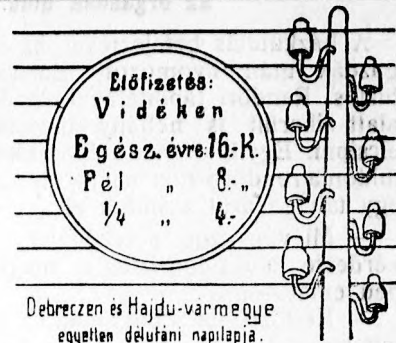 Előfizetés:
Vidéken
Egész évre 16.-K.
Fél „ 8.-„
1/4 „ 4.-
Debreczen és Hajdu-vármegye
egyetlen délutáni napilapja.